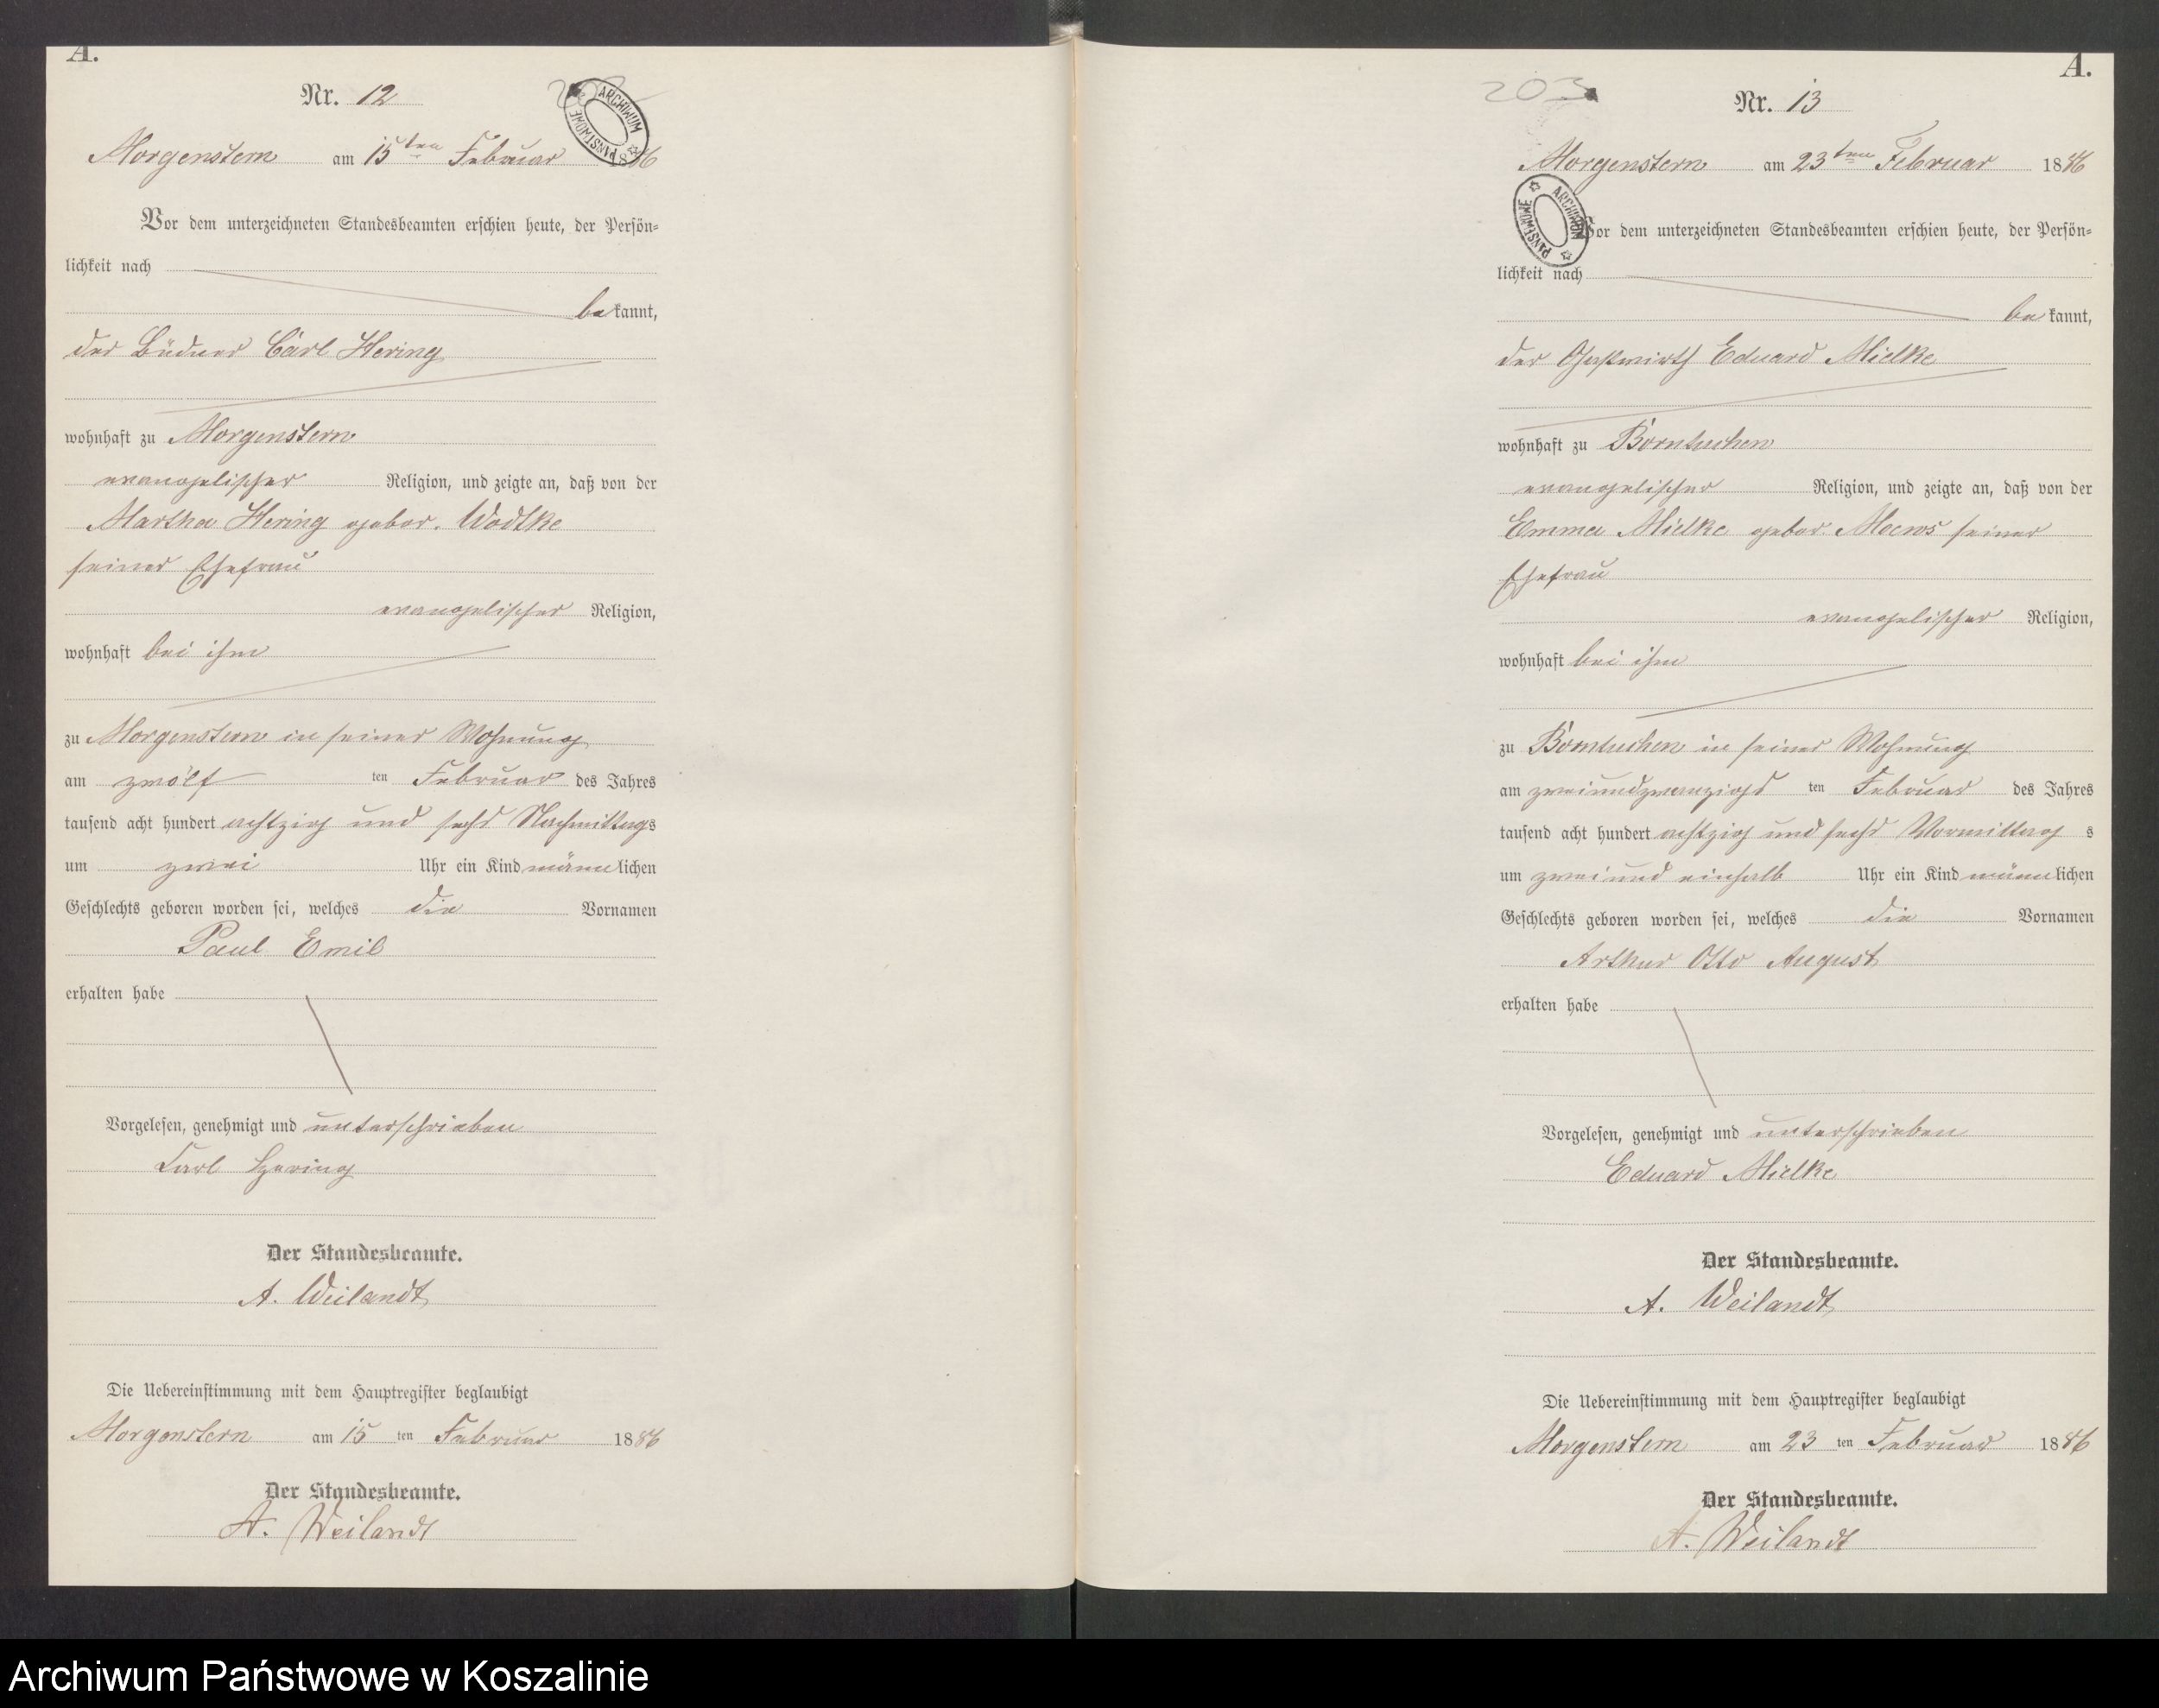 A.
Nr. 12
ARCHIWUM PAŃSTWOWE
Morgenstern am 15ten Februar 1886
Vor dem unterzeichneten Standesbeamten erschien heute, der Persön-
lichkeit nach
bekannt,
der Büdner Carl Hering
wohnhaft zu Morgenstern
evangelischer Religion, und zeigte an, daß von der
Martha Hering gebor. Wodtke
seiner Ehefrau
evangelischer Religion,
wohnhaft bei ihm
zu Morgenstern in seiner Wohnung
am zwölf ten Februar des Jahres
tausend acht hundert achtzig und sechs Nachmittags
um zwei Uhr ein Kind männlichen
Geschlechts geboren worden sei, welches die Vornamen
Paul Emil
erhalten habe
Vorgelesen, genehmigt und unterschrieben
Carl Hering
Der Standesbeamte.
A. Weilandt
Die Uebereinstimmung mit dem Hauptregister beglaubigt
Morgenstern am 15 ten Februar 1886
Der Standesbeamte.
A. Weilandt
203
A.
Nr. 13
Morgenstern am 23ten Februar 1886
ARCHIWUM PAŃSTWOWE
Vor dem unterzeichneten Standesbeamten erschien heute, der Persön-
lichkeit nach
bekannt,
der Gastwirth Eduard Mielke
wohnhaft zu Borntuchen
evangelischer Religion, und zeigte an, daß von der
Emma Mielke gebor. Mews seiner
Ehefrau
evangelischer Religion,
wohnhaft bei ihm
zu Borntuchen in seiner Wohnung
am zweiundzwanzigst ten Februar des Jahres
tausend acht hundert achtzig und sechs Vormittag s
um zwei und einhalb Uhr ein Kind männlichen
Geschlechts geboren worden sei, welches die Vornamen
Arthur Otto August
erhalten habe
Vorgelesen, genehmigt und unterschrieben
Eduard Mielke
Der Standesbeamte.
A. Weilandt
Die Uebereinstimmung mit dem Hauptregister beglaubigt
Morgenstern am 23 ten Februar 1886
Der Standesbeamte.
A. Weilandt
Archiwum Państwowe w Koszalinie